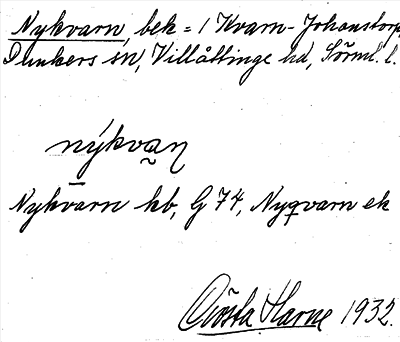 Nykvarn, bek = / Kvarn- Johanstorp,
Dunkers sn, Villåttinge hd, Sörml. l.
nýkvan
Nykvarn kb, G 74, Nyqvarn ek
Gösta Harne 1932.